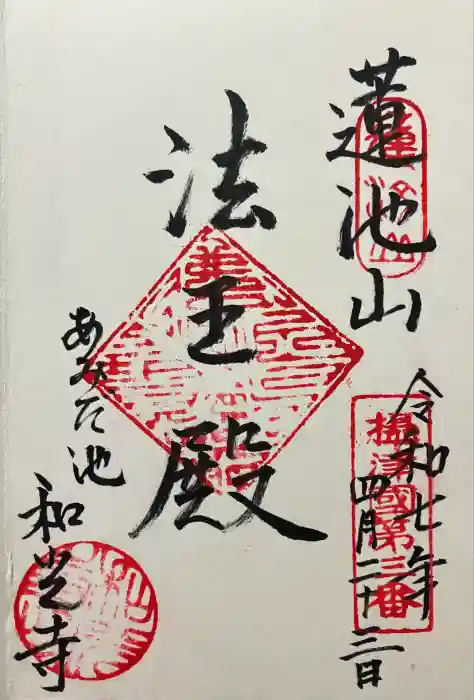 蓮池山
蓮池山
令和七年
四月二十三日
攝津國第三番
法王殿
あみだ池
和光寺